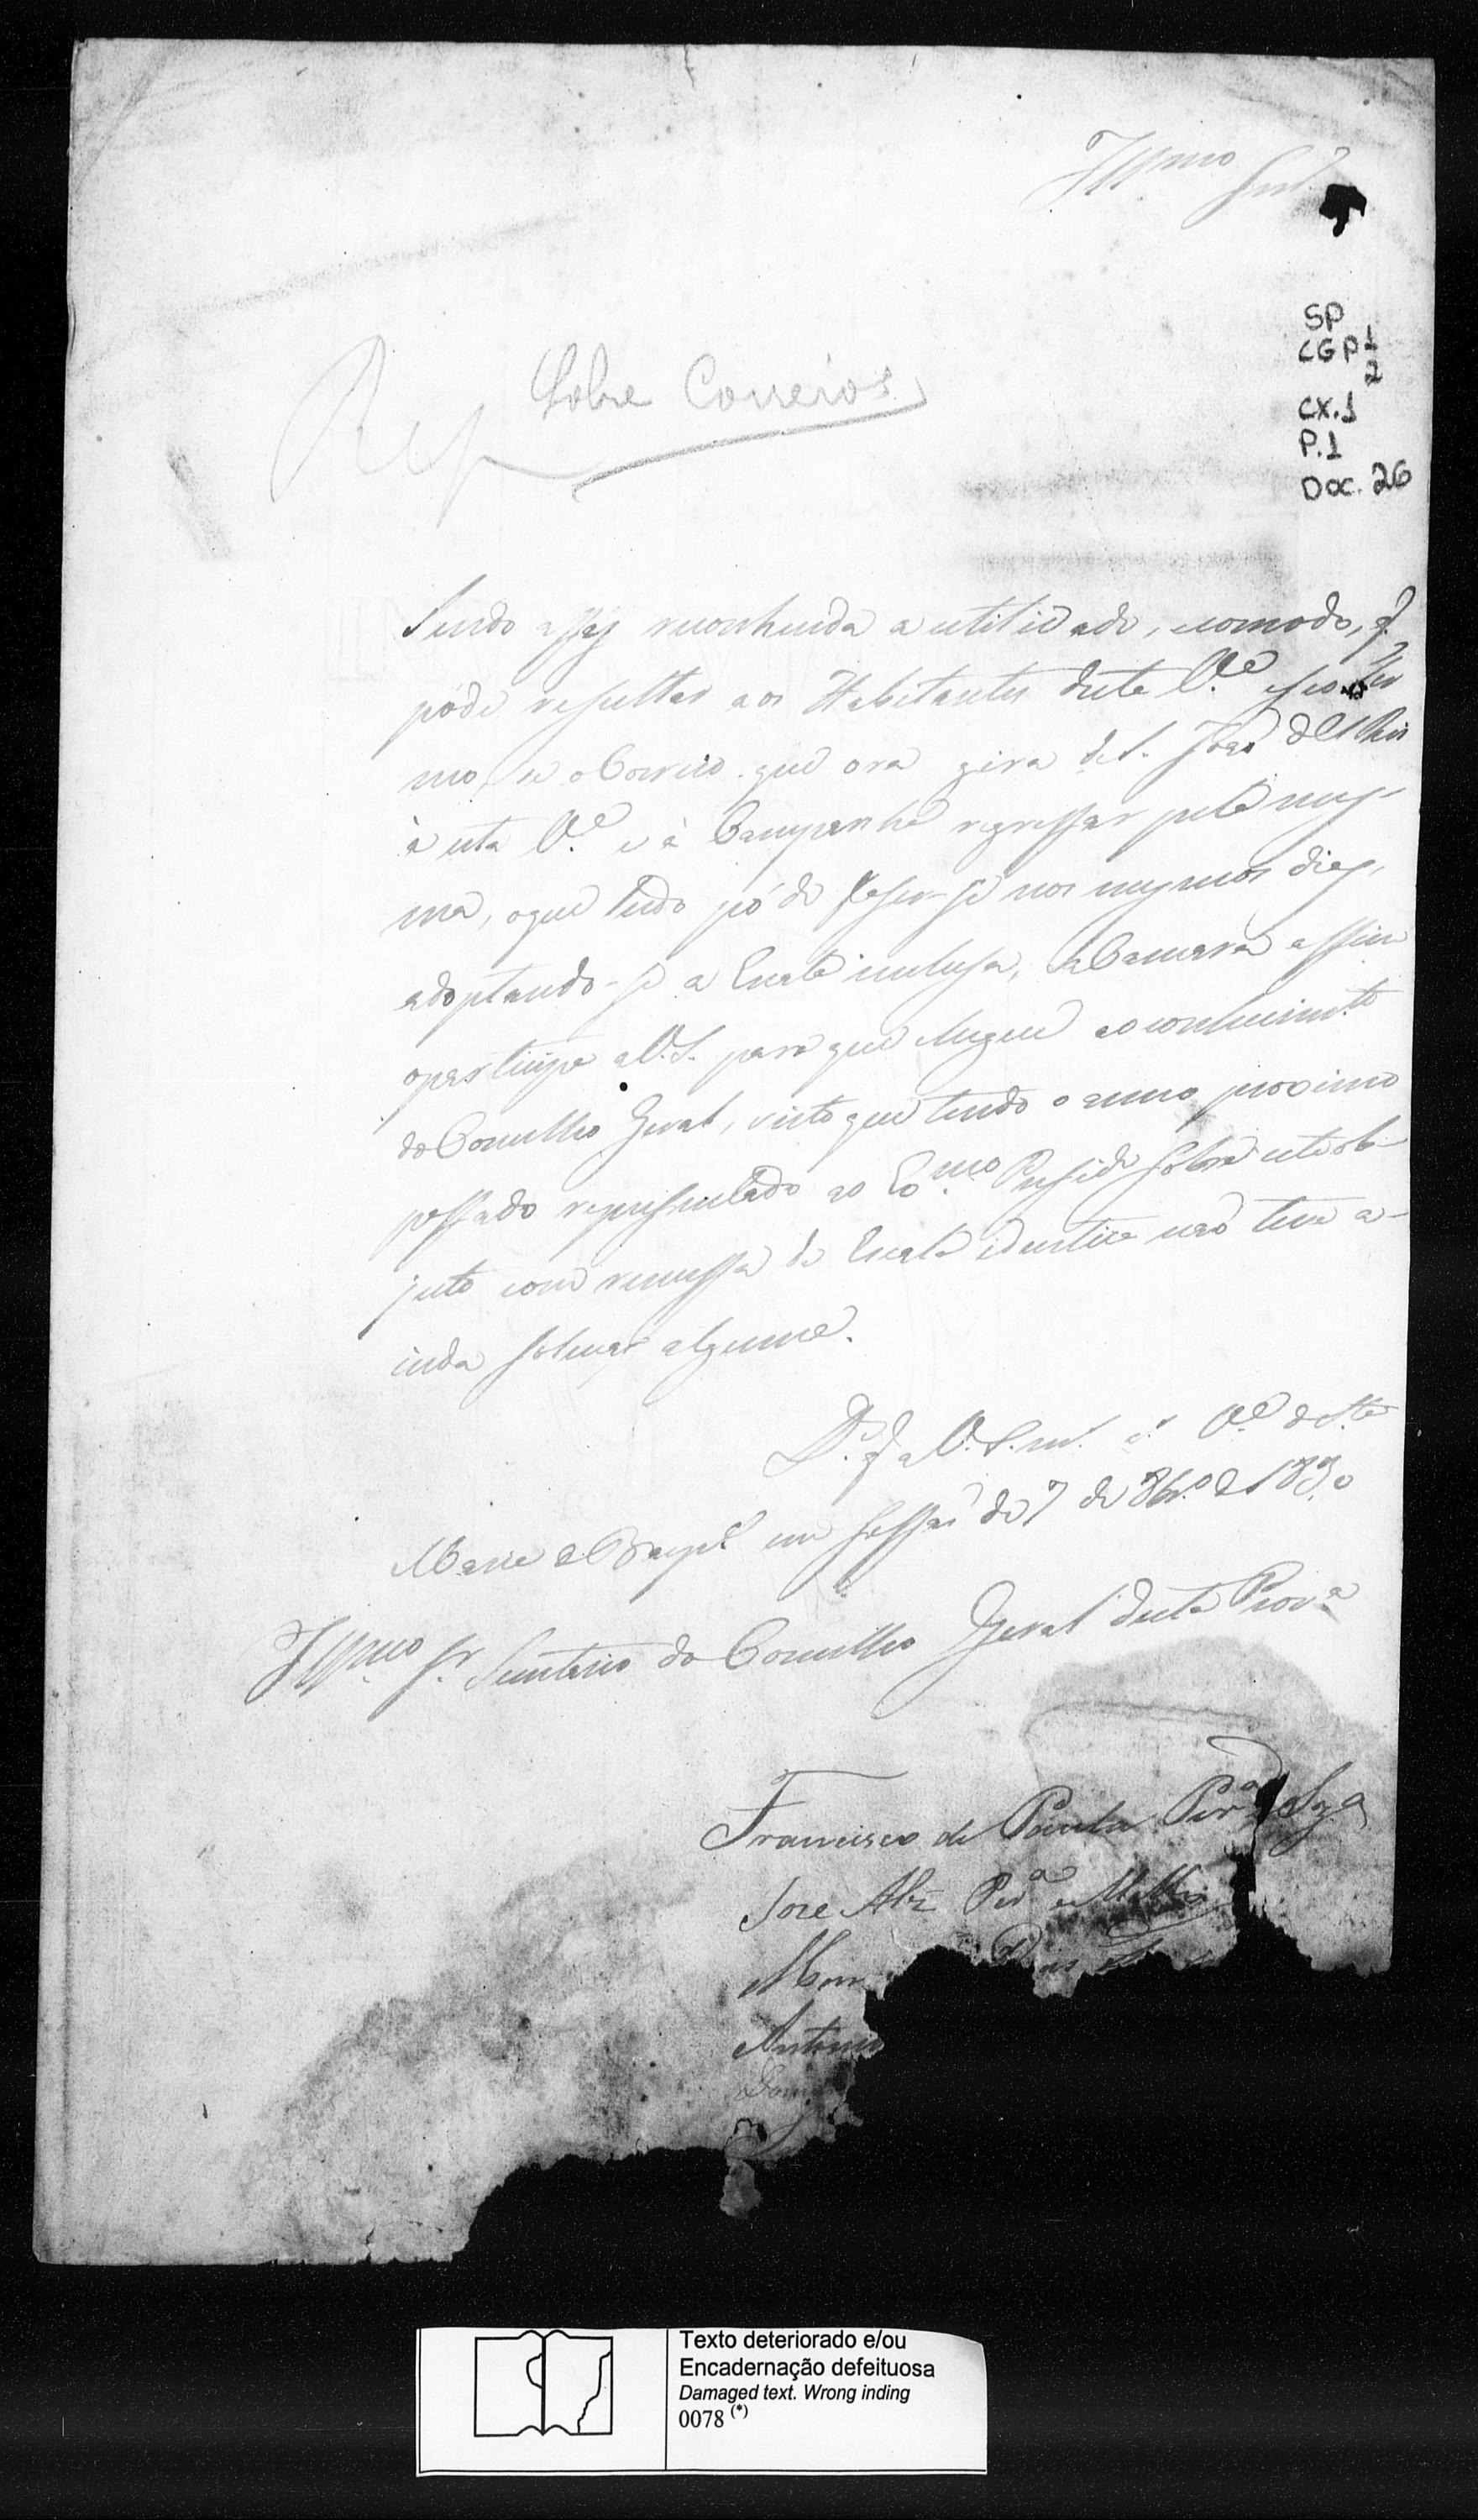 Illmo Snr.
SP
CGP 1
2
CX.1
P.1
Doc. 26
Rep
Sobre Correios
Sendo assas reconhecida a utilidade, ecomodo, q.
póde resultar aos Habitantes desta Va. eseo Ter
mo, se oCorreio que ora gira de S. João del Rei
à esta Va. e à Campanha regressar pela mes-
ma, oque tudo póde faser-se nos mesmos dias,
adoptando-se a Escala inclusa, aCamara assim
oparticipa aV.S. para que chegue aoconhecimto.
doConselho Geral, visto que tendo o anno proximo
passado representado ao Exmo. Preside. sobre este ob-
jecto com remessa de Escala identica não teve a-
inda solução alguma.
Ds. ge. a V.S. ms. as. Va. de Sta.
Maria de Baepdi. em sessão de 7 de 8bro. de 1830
Illmo. Sr. Secretario do Conselho Geral desta Prova.
Francisco de Paula Pera. Sza
Jose Alz Pera. e Mello
Man
Antonio
Dom
Texto deteriorado e/ou
Encadernação defeituosa
Damaged text. Wrong inding
0078 (*)